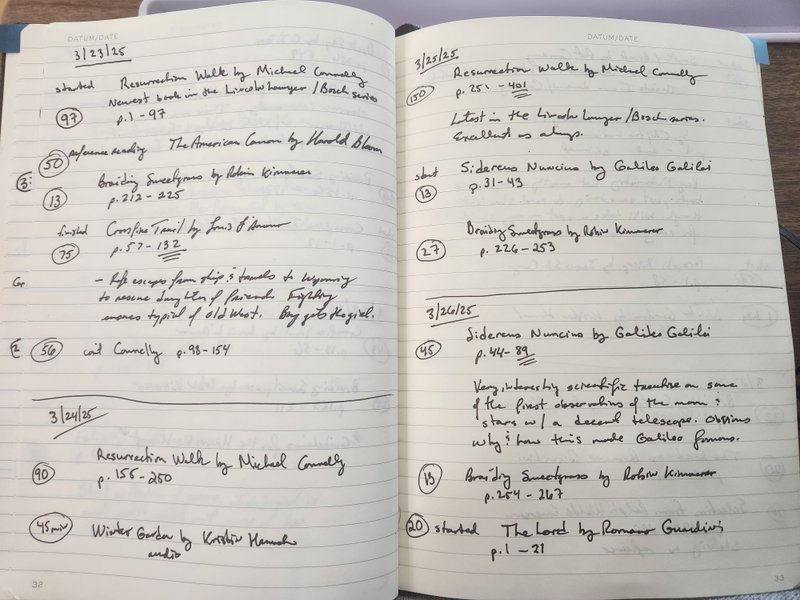 DATUM/DATE
3/23/25
started Resurrection Walk by Michael Connelly
Newest book in the Lincoln Lawyer / Bosch series
97 p. 1-97
50 reference reading The American Canon by Harold Bloom
Braiding Sweetgrass by Robin Kimmerer
13 p. 212-225
finished Crossfire Trail by Louis L'Amour
75 p. 57-132
- Rafe escapes from ship & travels to Wyoming
to rescue daughter of friend. Fighting
enemies typical of old west. Boy gets the girl.
56 cont Connelly p. 98-154
3/24/25
Resurrection Walk by Michael Connelly
90 p. 155-250
45 min Winter Garden by Kristin Hannah
audio
32
DATUM/DATE
3/25/25
Resurrection Walk by Michael Connelly
150 p. 251-401
Latest in the Lincoln Lawyer / Bosch series.
Excellent as always.
start Sidereus Nuncius by Galileo Galilei
13 p. 31-43
Braiding Sweetgrass by Robin Kimmerer
27 p. 226-253
3/26/25
Sidereus Nuncius by Galileo Galilei
45 p. 44-89
Very interesting scientific treatise on some
of the first observations of the moon &
stars w/ a decent telescope. Obvious
why & how this made Galileo famous.
13 Braiding Sweetgrass by Robin Kimmerer
p. 254-267
20 started The Lord by Romano Guardini
p. 1-21
33